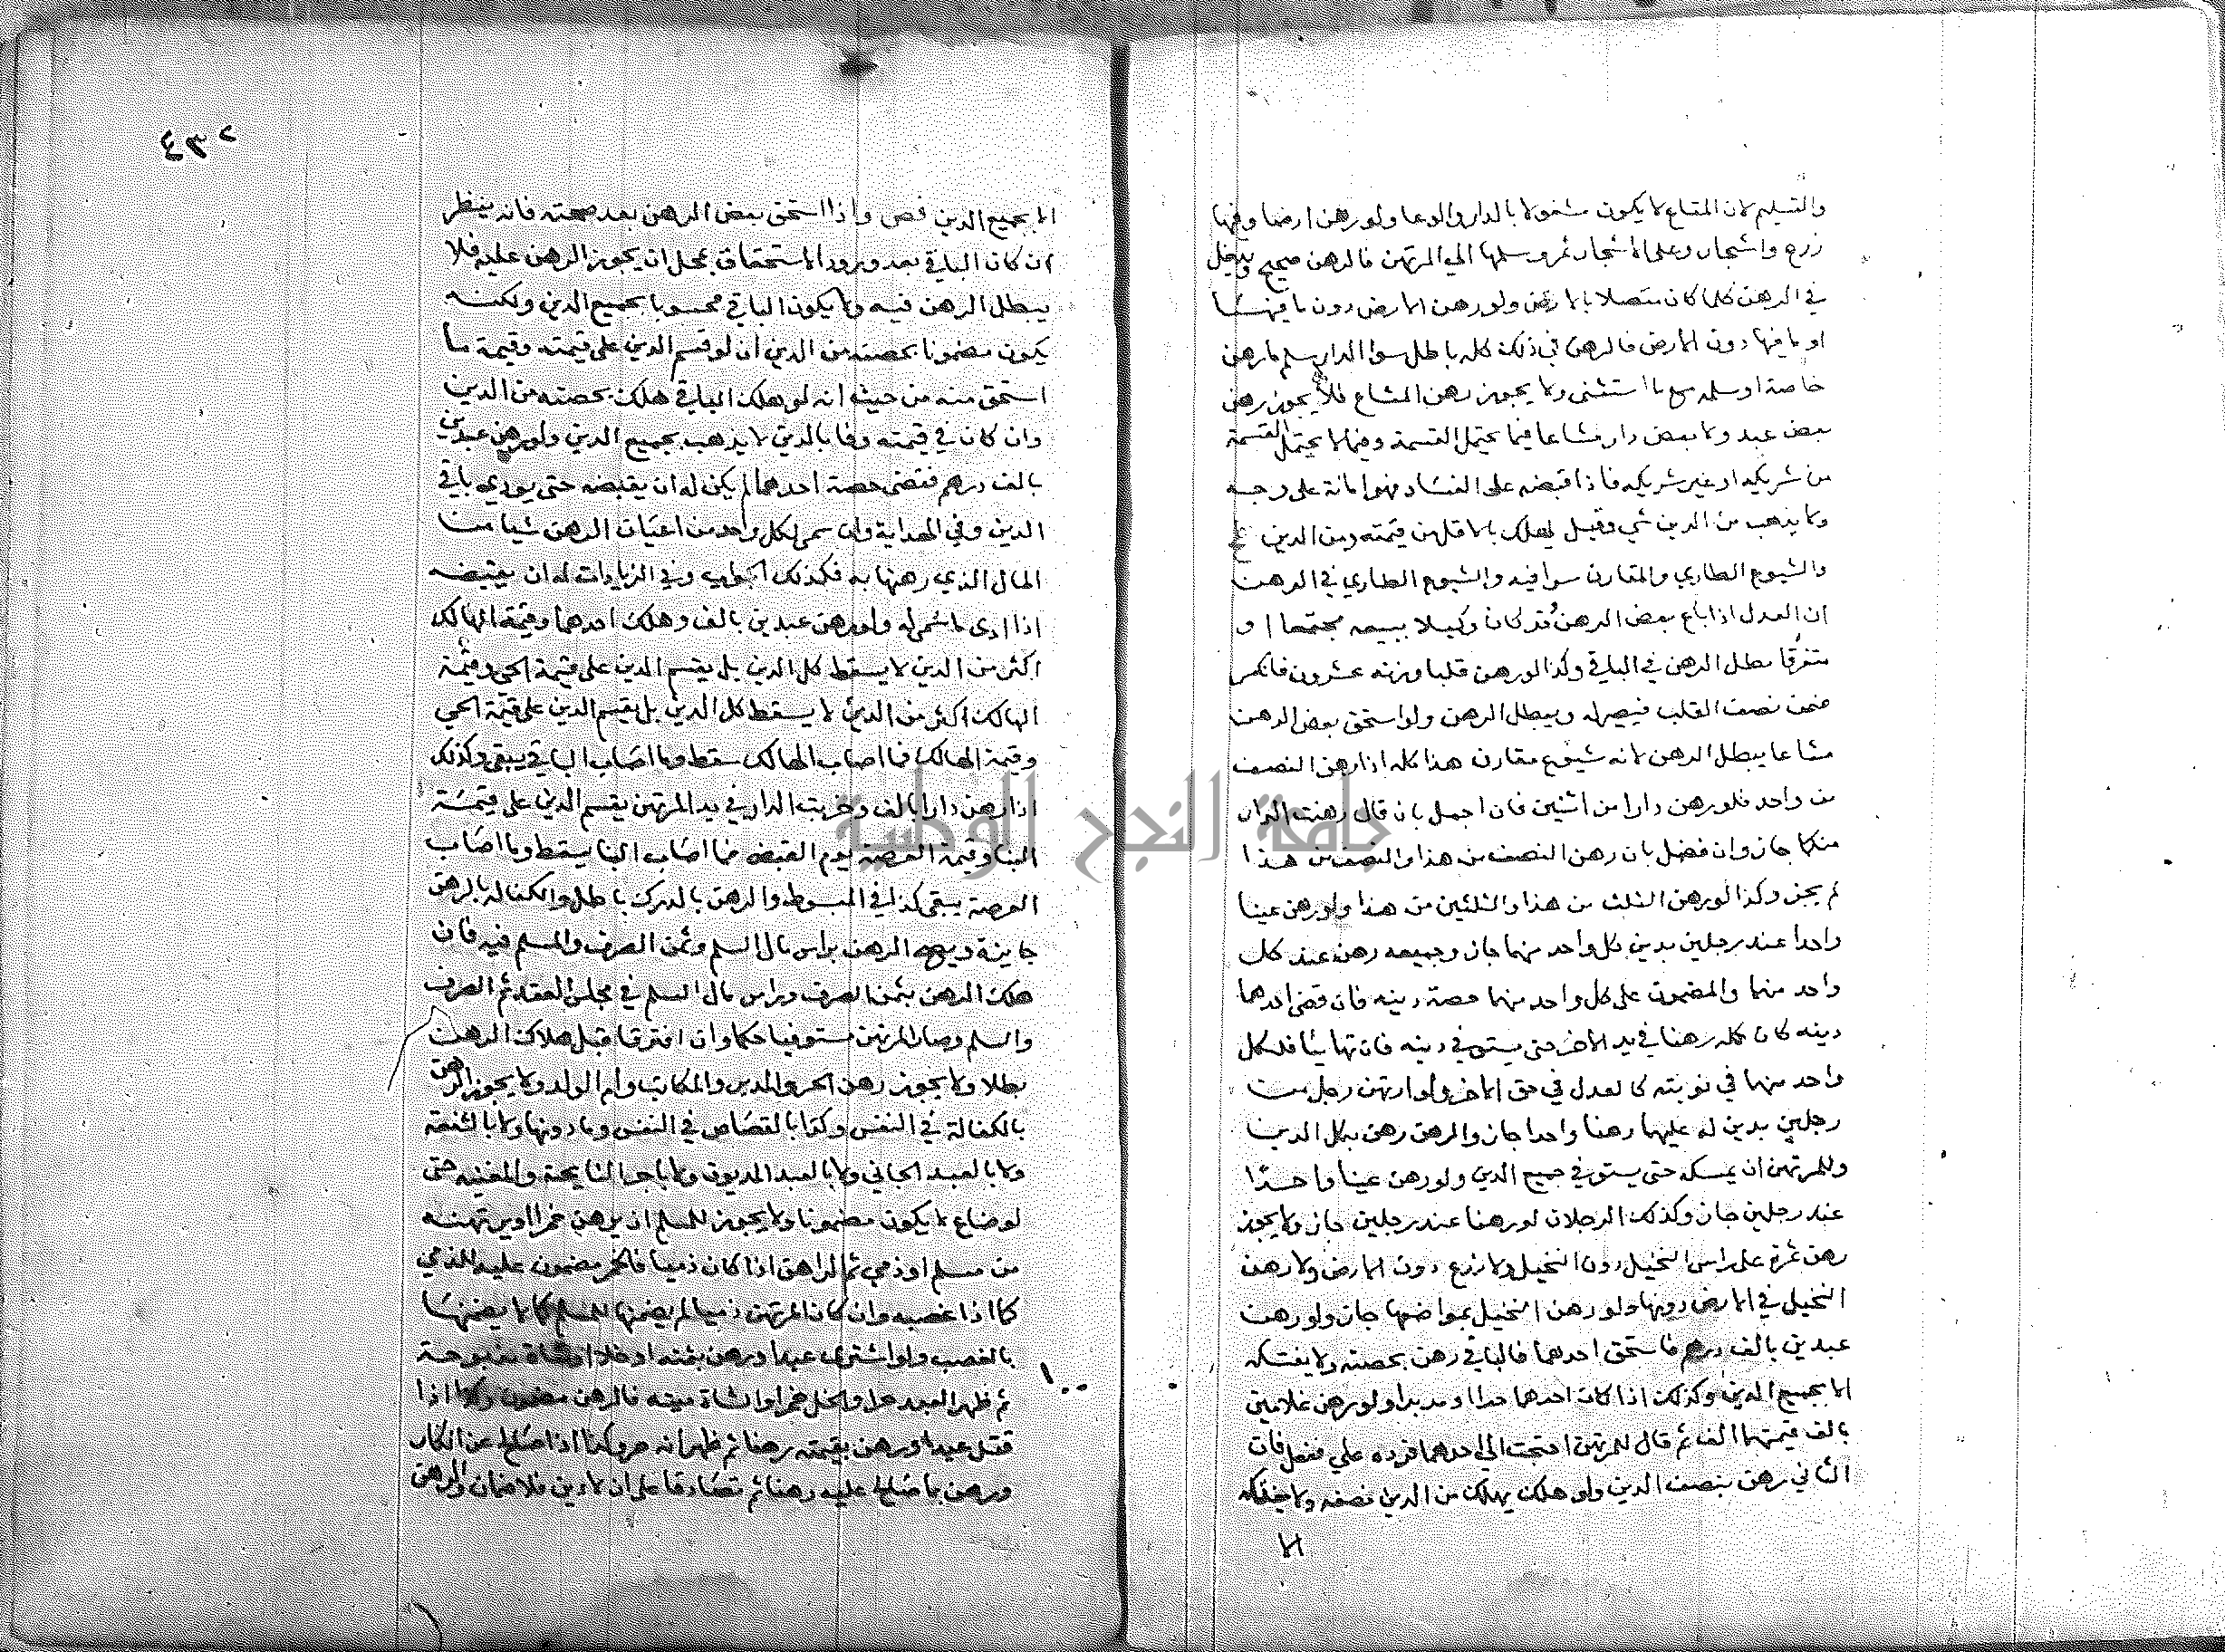 والتسليم لان المتاع لا يكون مشغولا بالدار والوعا ولو رهن ارضا وفيها
زرع واشجار وعلى الاشجار ثمر وسلمها الى المرتهن فالرهن صحيح ويدخل
في الرهن كلما كان متصلا بالارض ولو رهن الارض دون ما فيها
او ما فيها دون الارض فالرهن في ذلك كله باطل سوا الدار سلم ما رهن
خاصة او سلمه مع ما استثنى ولا يجوز رهن المشاع فلا يجوز رهن
بعض عبد ولا بعض دار مشاعا فيما يحتمل القسمة وفيما لا يحتمل القسمة
من شريكه او غير شريكه فاذا قبضه على الفساد فهو امانة على وجه
ولا يذهب من الدين شي وقيل يهلك بالاقل من قيمته ومن الدين
والشيوع الطاري والمقارن سوا فيه والشيوع الطاري في الرهن
ان العدل اذا باع بعض الرهن قد كان وكيلا ببيعه مجتمعا او
متفرقا بطل الرهن في الباقي وكذا لو رهن قلبا وزنه عشرون فانكسر
ضمن نصف القلب فيصير له ويبطل الرهن ولو استحق بعض الرهن
مشاعا يبطل الرهن لانه شيوع مقارن هذا كله اذا رهن النصف
من واحد فلو رهن دارا من اثنين فان اجمل بان قال رهنت الدار
منكما جاز وان فصل بان رهن النصف من هذا والنصف من هذا
لم يجز وكذا لو رهن الثلث من هذا والثلثين من هذا ولو رهن عينا
واحدا عند رجلين بدين كل واحد منهما جاز وجميعه رهن عند كل
واحد منهما والمضمون على كل واحد منهما حصة دينه فان قضى احدهما
دينه كان كله رهنا في يد الاخر حتى يستوفي دينه فان تهايئا فلكل
واحد منهما في نوبته كالعدل في حق الاخر ولو ارتهن رجل من
رجلين بدين له عليهما رهنا واحدا جاز والرهن رهن بكل الدين
وللمرتهن ان يمسكه حتى يستوفي جميع الدين ولو رهن عينا واحدا
عند رجلين جاز وكذلك الرجلان لو رهنا عند رجلين جاز ولا يجوز
رهن ثمرة على راس النخيل دون النخيل ولا زرع دون الارض ولا رهن
النخيل في الارض دونها ولو رهن النخيل بمواضعها جاز ولو رهن
عبدين بالف درهم فاستحق احدهما فالباقي رهن بحصته ولا يفتكه
الا بجميع الدين وكذلك اذا كان احدهما حرا او مدبرا ولو رهن غلامين
بالف قيمتهما الف ثم قال للمرتهن احتجت الى احدهما فرده علي ففعل فان
الثاني رهن بنصف الدين ولو هلك يهلك من الدين نصفه ولا يفتكه
الا
٢٣٤
الا بجميع الدين فص واذا استحق بعض الرهن بعد صحته فانه ينظر
ان كان الباقي بعد ورود الاستحقاق بمحل ان يجوز الرهن عليه فلا
يبطل الرهن فيه ولا يكون الباقي محسوبا بجميع الدين ولكنه
يكون مضمونا بحصته من الدين ان لو قسم الدين على قيمته وقيمة ما
استحق منه من حيث انه لو هلك الباقي هلك بحصته من الدين
وان كان في قيمته وفا بالدين لا يذهب بجميع الدين ولو رهن عبدين
بالف درهم فقضى حصة احدهما لم يكن له ان يقبضه حتى يودي باقي
الدين وفي الهداية وان سمى لكل واحد من اعيان الرهن شيا من
المال الذي رهنها به فكذلك الجواب وفي الزيادات له ان يقبضه
اذا ادى ما سمى له ولو رهن عبدين بالف وهلك احدهما وقيمة الهالك
اكثر من الدين لا يسقط كل الدين بل يقسم الدين على قيمة الحي وقيمة
الهالك اكثر من الدين لا يسقط كل الدين بل يقسم الدين على قيمة الحي
وقيمة الهالك فما اصاب الهالك سقط وما اصاب الباقي يبقى وكذلك
اذا رهن دارا بالف وخربت الدار في يد المرتهن يقسم الدين على قيمة
البنا وقيمة العرصة يوم القبض فما اصاب البنا يسقط وما اصاب
العرصة يبقى كذا في المبسوط والرهن بالدرك باطل والكفالة بالرهن
جايزة ويصح الرهن براس مال السلم وثمن الصرف والمسلم فيه فان
هلك الرهن بثمن الصرف وبراس مال السلم في مجلس العقد تم الصرف
والسلم وصار المرتهن مستوفيا حكما وان افترقا قبل هلاك الرهن
بطلا ولا يجوز رهن الحر والمدبر والمكاتب وام الولد ولا يجوز الرهن
بالكفالة في النفس وكذا بالقصاص في النفس وما دونها ولا بالشفعة
ولا بالعبد الجاني ولا بالعبد المديون ولا باجر النايحة والمغنية حتى
لو ضاع لا يكون مضمونا ولا يجوز للمسلم ان يرهن خمرا او يرتهنه
من مسلم او ذمي ثم الراهن اذا كان ذميا فالخمر مضمون عليه للذمي
كما اذا غصبه وان كان المرتهن ذميا لم يضمنها للمسلم كما لا يضمنها
بالغصب ولو اشترى عبدا ورهن بثمنه او خلا او شاة مذبوحة
ثم ظهر العبد حرا والخل خمرا والشاة ميتة فالرهن مضمون وكذا اذا
قتل عبدا ورهن بقيمته رهنا ثم ظهر انه حر وكذا اذا صالح عن انكار
ورهن بما صالح عليه رهنا ثم تصادقا على ان لا دين فلا ضمان والرهن
جامعة النجاح الوطنية